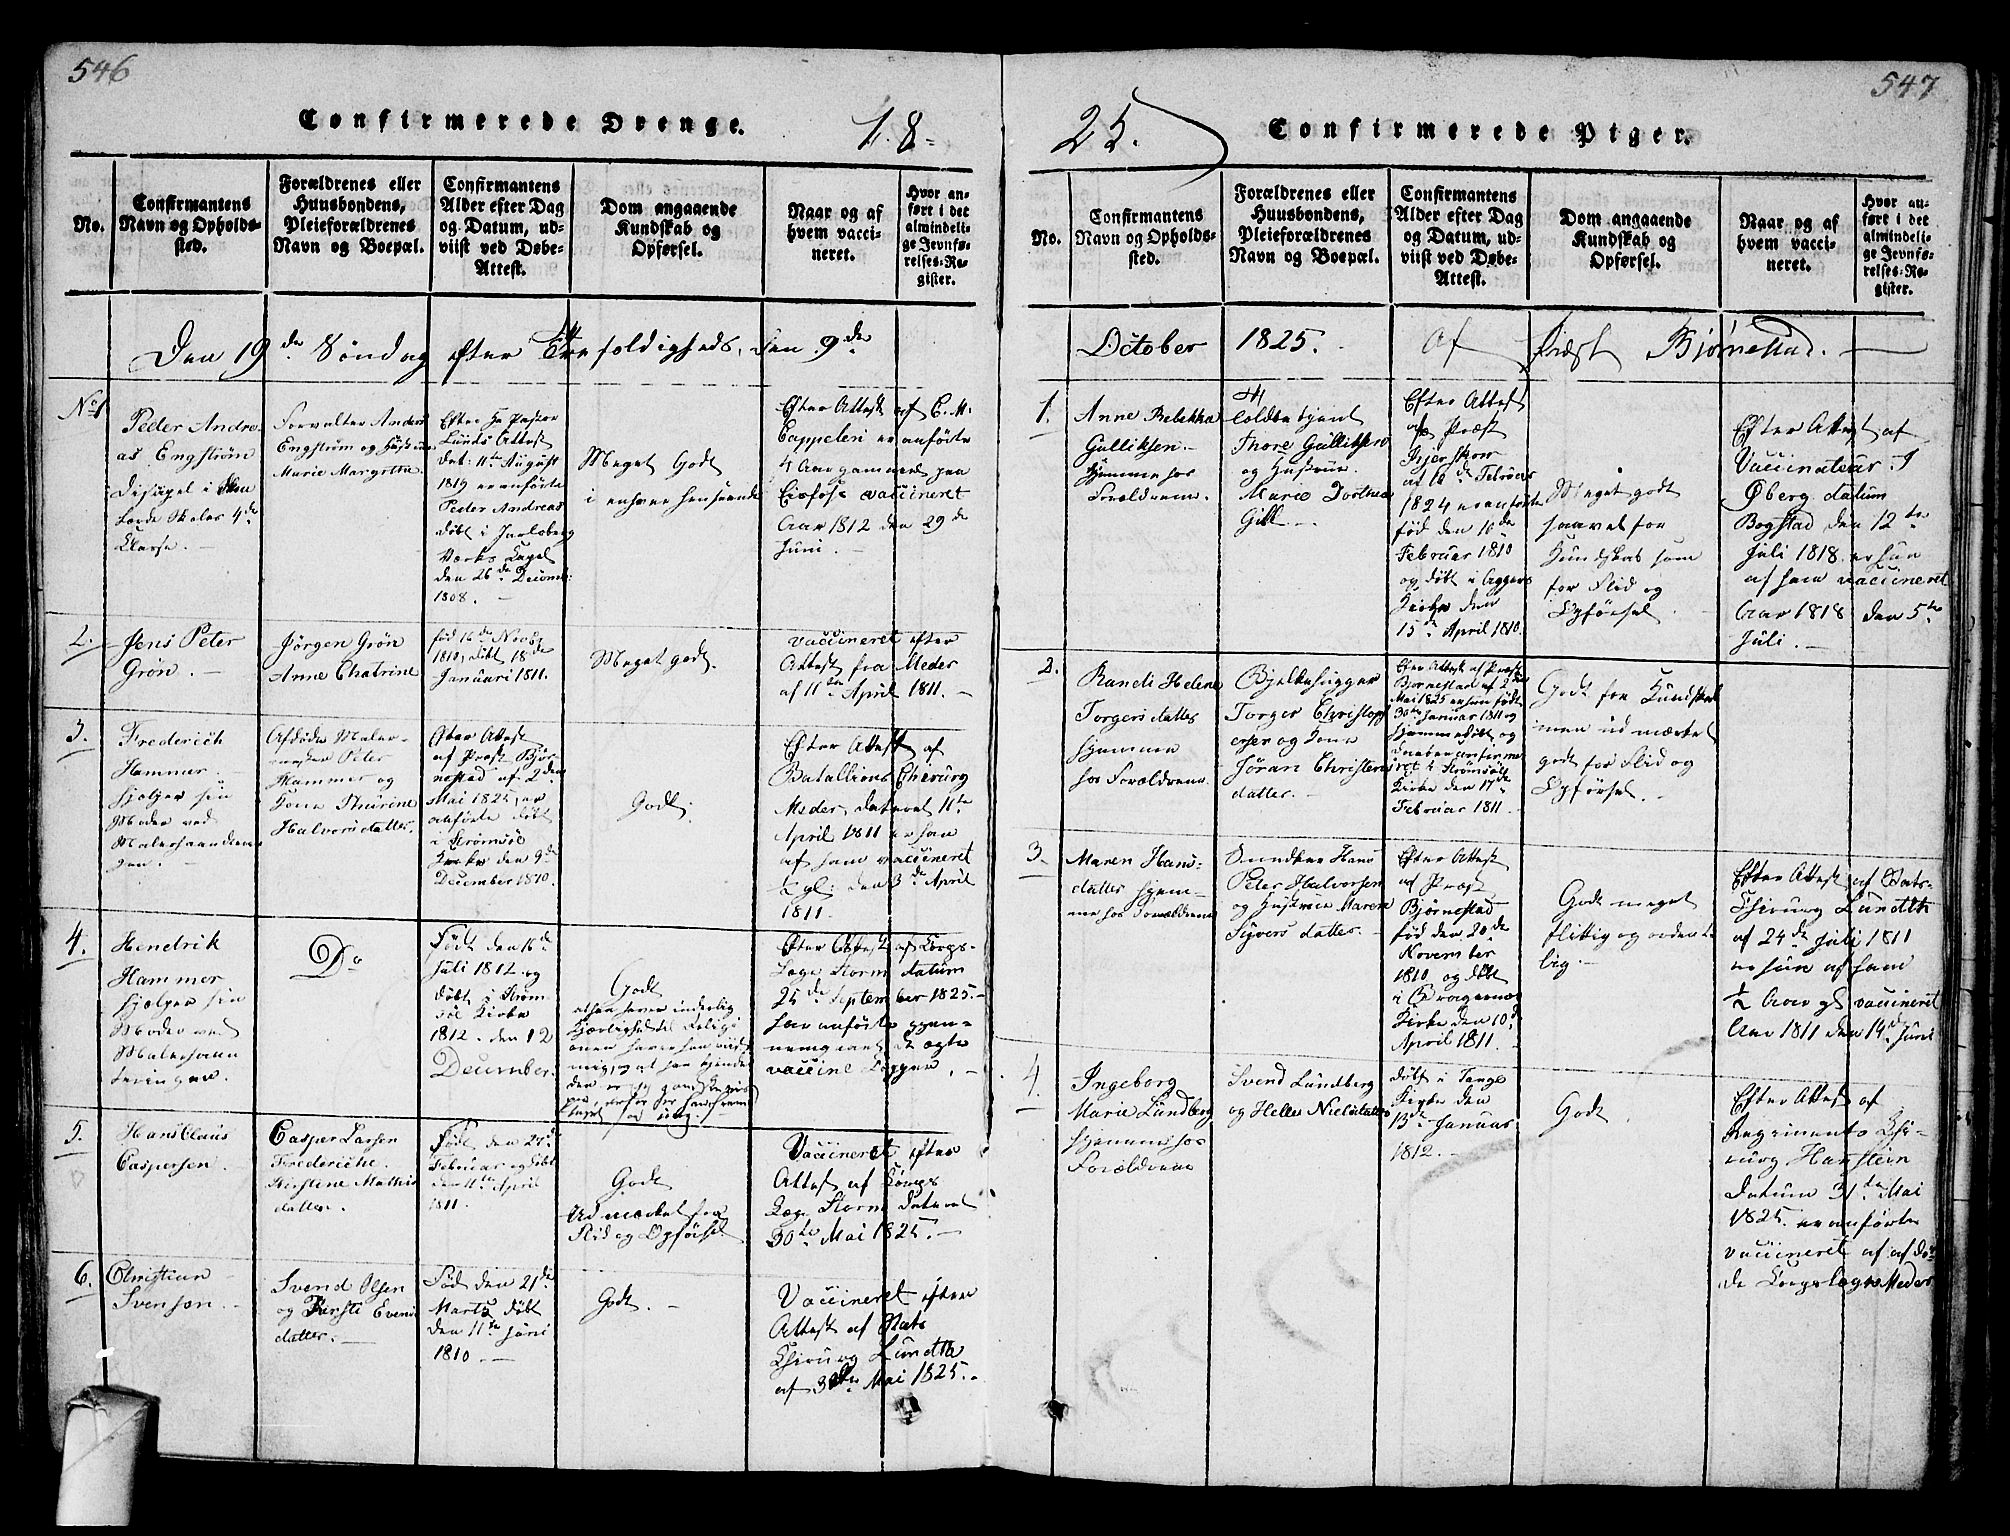 546
Confirmerede Drenge.
18-
No.
Confirmantens
Navn og Opholds-
sted.
Forældrenes eller
Huusbondens,
Pleieforældrenes
Navn og Boepæl.
Confirmantens
Alder efter Dag
og Datum, ud-
viist ved Døbe-
Attest.
Dom angaaende
Kundskab og
Opførsel.
Naar og af
hvem vacci-
neret.
Hvor an-
ført i det
almindeli-
ge Jevnfø-
relses-Re-
gister.
Den 19de Søndag efter Trefoldigheds, den 9de
No 1
Peder Andre-
as Engstrøm
Disipel i
Lærde Skoles 4de
Classe.
Forvalter Anders
Engstrøm og Hustrue
Marie Margrethe
Efter Hr Pastor
Lunds Attest
dat: 11te August
1819 er anførte
Peder Andreas
døbt i Jarlsberg
Værks Capel
den 26de Decemb:
1808.
Meget Godt
i enhver henseende
Efter Attest af C. M.
Cappelen er anførte
4 Aar gammel paa
Eidfos vaccineret
Aar 1812 den 29de
Juni.
2.
Jens Peter
Grøn.
Jørgen Grøn
Anne Chatrine
født 16de Novbr
1810, døbt 18de
Januari 1811.
Meget godt.
vaccineret efter
Attest fra Meder
af 11te April 1811.
3.
Frederich
Hammer
hjelper sin
Moder ved
Afdøde Maler-
mester Peter
Hammer og
Kone Thurine
Halvorsdatter.
Efter Attest
af Præst Bjør-
nestad af 2den
Mai 1825, er
anførte døbt
i Strømsøe
Kirke den 9de
December 1810.
Godt.
Efter Attest af
Batallions Chirurg
Meder, dateret 11te
April 1811 er han
af ham vaccineret
den 3de April
1811.
4.
Hendrik
Hammer
hjelper sin
Moder ved
Do
Født den 16de
Juli 1812 og
døbt i Strøm-
søe Kirke
1812. den 12
December.
Godt
Efter Attest af Corps-
Læge Storm datum
25de September 1825.
har anførte gjen-
nemgaaet de ægte
vaccine Kopper.
5.
Hans Claus
Caspersen.
Casper Larsen
Frederiche
Kirstine Mathis
datter.
Født, den 27de
Februar og døbt
den 11te April
1811.
Godt
Udmærket for
Flid og Opførsel
Vaccineret efter
Attest af Corps
Læge Storm dateret
30te Mai 1825.
6.
Christian
Svensen.
Svend Olsen
og Kirsti Evens
datter.
Født den 21de
Marts døbt
den 11te Juni
1810.
Godt.
Vaccineret efter
Attest af Stats
Chirurg Lundth
af 30te Mai 1825.
547
25.
Confirmerede Piger.
No.
Confirmantens
Navn og Opholds-
sted.
Forældrenes eller
Huusbondens,
Pleieforældrenes
Navn og Boepæl.
Confirmantens
Alder efter Dag
og Datum, ud-
viist ved Døbe-
Attest.
Dom angaaende
Kundskab og
Opførsel.
Naar og af
hvem vacci-
neret.
Hvor an-
ført i det
almindeli-
ge Jevnfø-
relses-Re-
gister.
October 1825. Af Præst Bjørnestad.
1.
Anne Rebekka
Gulliksen.
hjemme hos
Forældrene.
Thore Gulliksen
og Hustrue
Marie Dorthea
Gill
Efter Attest
af Præst
af 12de Februar
1824 er anførte
fød den 16de
Februar 1810
og døbt i Aggers
Kirke den
15de April 1810.
Meget godt
saavel for
Kundskab som
for Flid og
Opførsel
Efter Attest af
Vaccinateur J
Øberg datum
Bogstad den 12te
Juli 1818. er hun
af ham vaccineret
Aar 1818 den 5te
Juli.
2.
Randi Helene
Torgersdatter
hjemme
hos Forældrene
Bjelkehugger
Torger Christoph
ersen og Kone
Jøran Christens
datter.
Efter Attest af Præst
Bjørnestad af 2den
Mai 1825 er hun født
30te Januar 1811 og
hjemmedøbt og
Kirke den 17de
Februar 1811.
Godt for Kundskab
men udmærket
godt for Flid og
Opførsel.
3.
Maren Hans-
datter hjem-
me hos Forældrene
Hans
Peter Halvorsen
og Hustrue Maren
Syversdatter
Efter Attest
af Præst
Bjørnestad
fød den 20de
November
1810 og døbt
i Bragernæs
Kirke den 10de
April 1811.
Godt meget
flittig og orden-
lig.
Efter Attest af Stats-
Chirurg Lundth
af 24de Juli 1811
er hun af ham
½ Aar gl vaccineret
Aar 1811 den 14de Juni
4.
Ingeborg
Marie Lundberg
hjemme hos
Forældrene
Svend Lundberg
og Helle Nielsdatter
døbt i Tange
Kirke den
13de Januar
1812.
Godt
Efter Attest af
Regiments Chi-
rurg Hanstein
Datum 31te Mai
1825. er anførte
vaccineret af afdø-
de Corps læge Meder